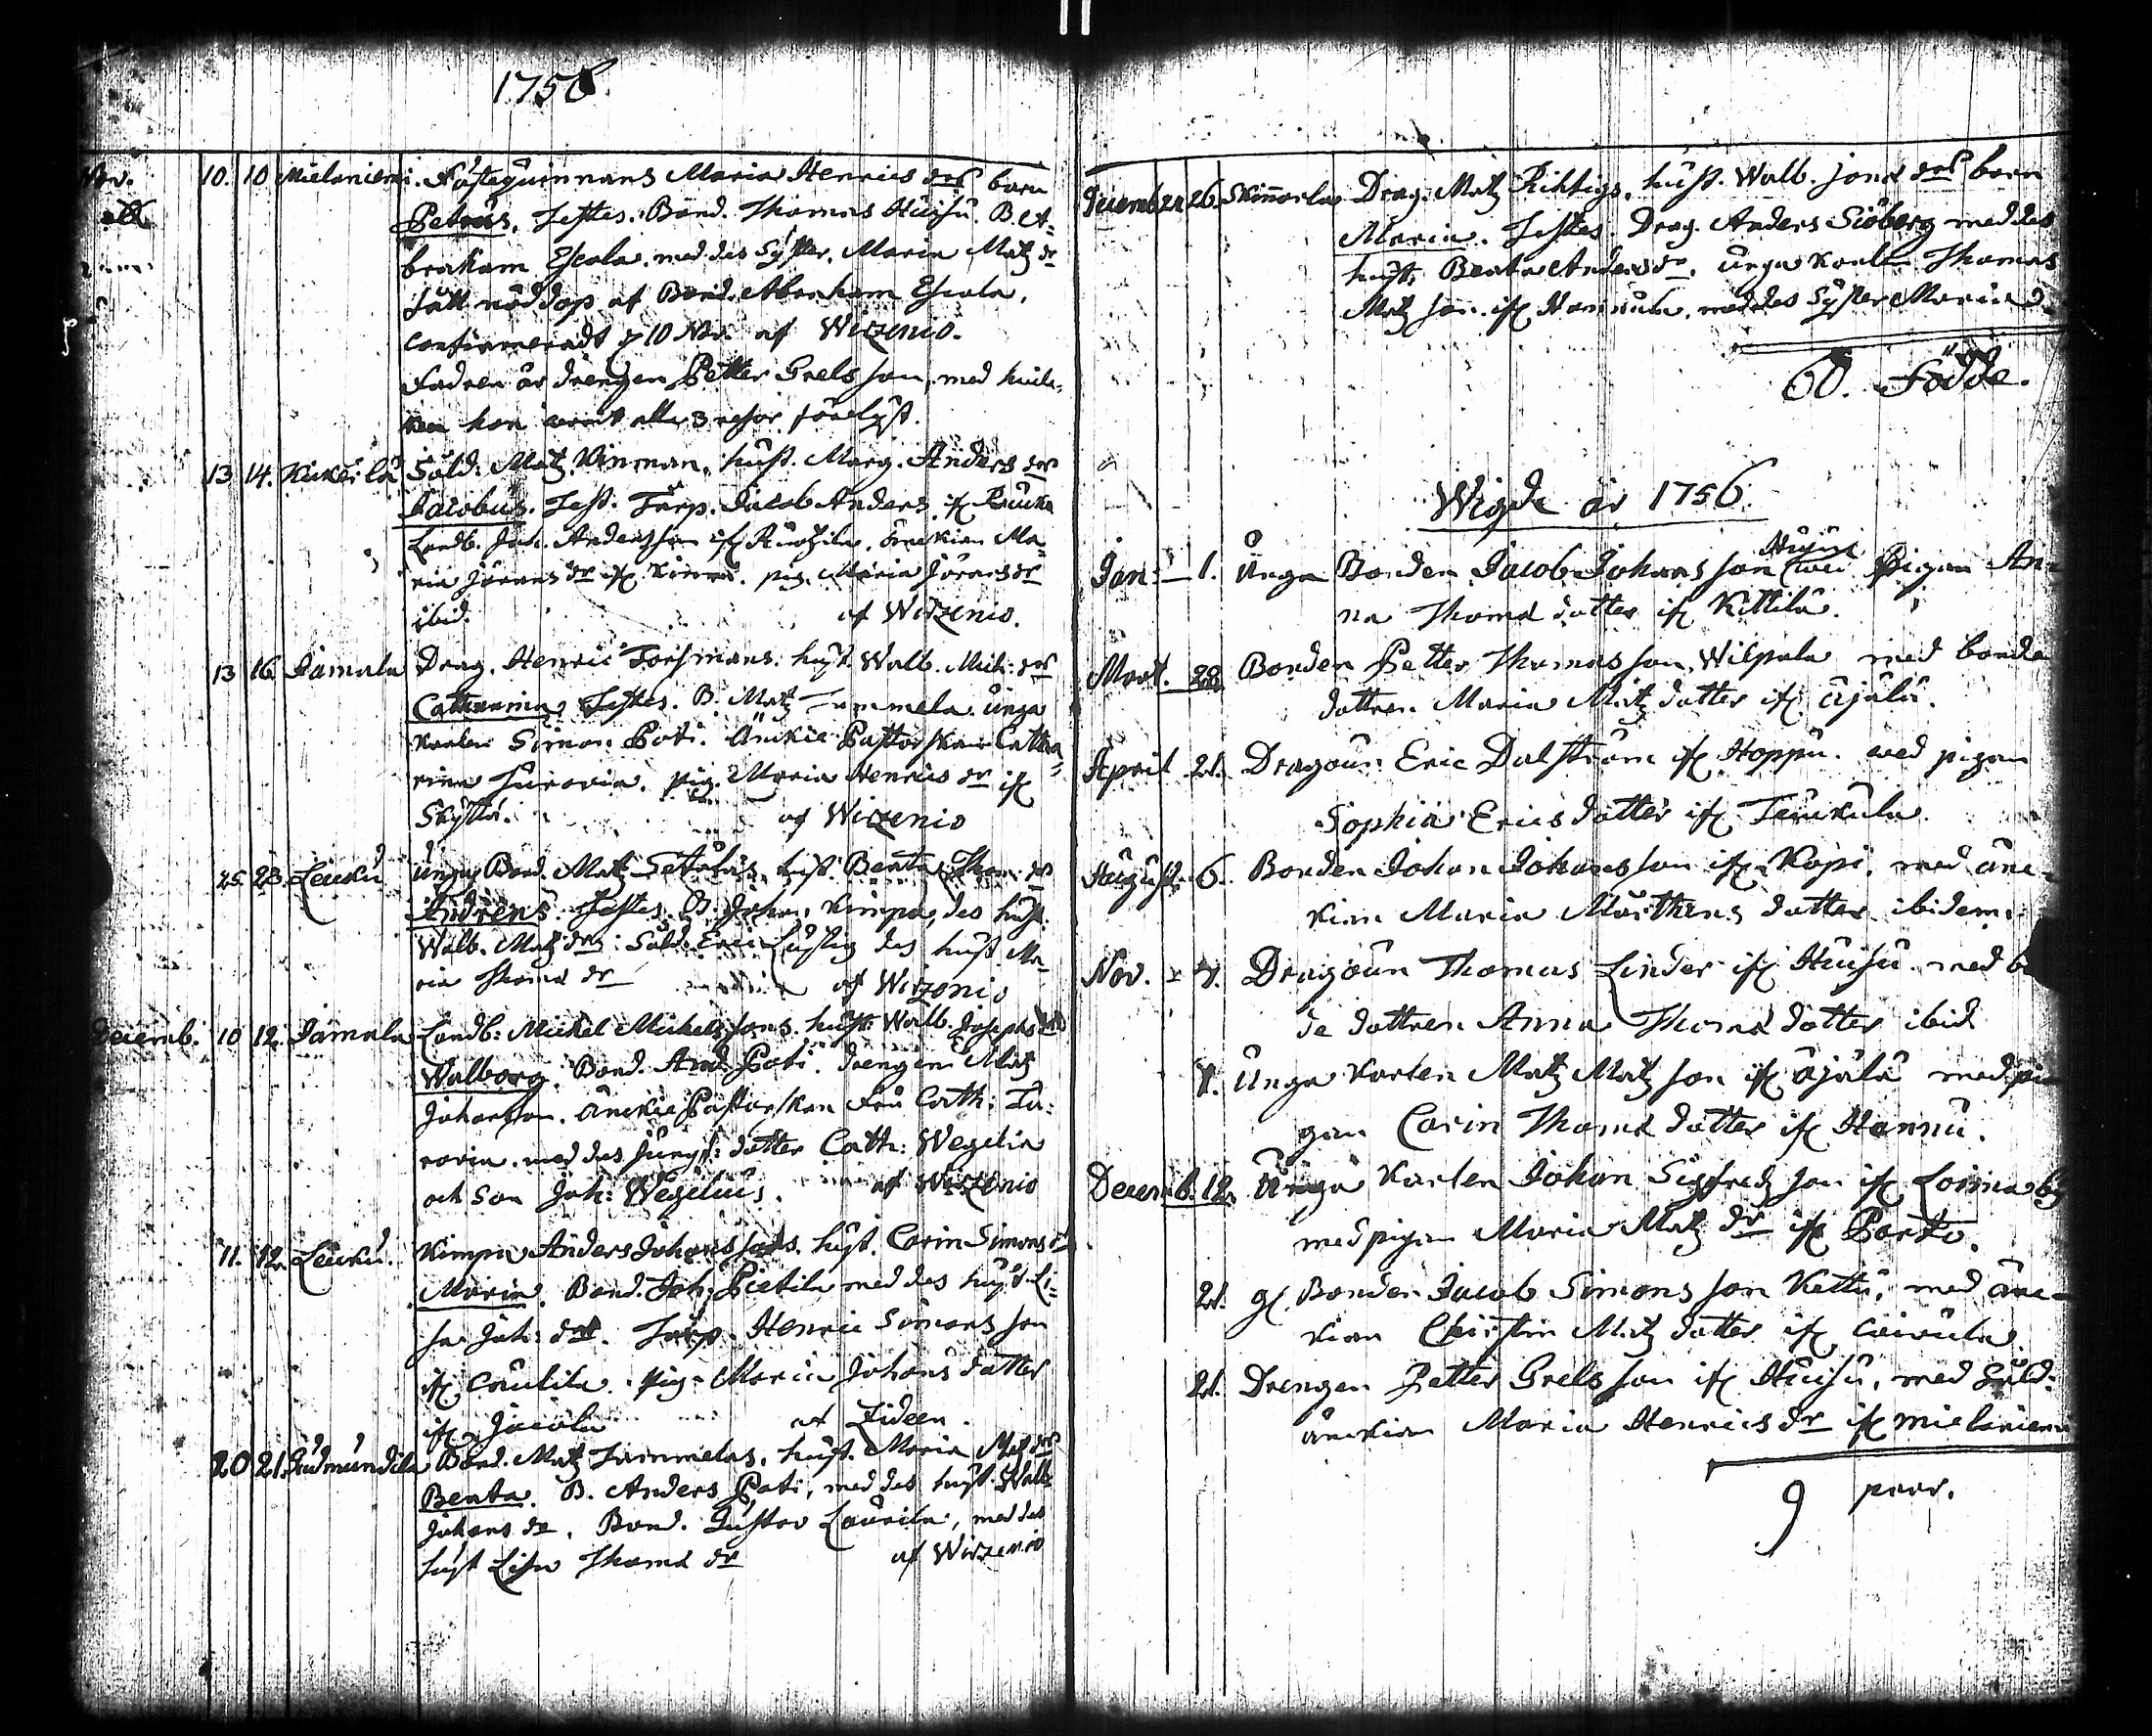 1756
Nov. 10. 10 Mielaniemi. Fästequinnans Maria Henrics drs barn
Petrus. Testes. Bond. Thomas Huisu. B. A-
braham Escola. med des Syster Maria Matz dr
fått nöddop af Bond. Abraham Escola.
confirmeradt d 10 Nov. af Wirzenio.
Fadren är drengen Petter Grels son, med hwil-
ken hon warit alla 3 resor förelyst.
13 14. Sold: Matz Kinman, hust. Marg. Anders drs
Jacobus. Test. Torp. Jacob Anders. if
Landb. Joh. Andersson if änckian Ma-
ria Jörans dr if pig. Maria Jörans dr
ibid. af Wirzenio.
13 16. Jamala Drag. Henric Forsmans hust Walb. Mich: drs
Catharina. Testes. B. Matz Tammela. unga
karlen Simon Poti. Änckie Pastorskan Catha-
rina pig. Maria Henrics dr if
Skyttä. af Wirzenio
25. 28. Leuku unga Bond. Matz hust. Beata Thom. dr
Andreas. Testes. B. Johan Kimpa, des hust.
Walb. Matz dr. Sold. Eric Lustig des hust Ma-
ria Thomæ dr af Wirzenio
Decemb. 10 12. Jamala Landb: Michel Michelssons. hust: Walb. Josephs drs
Walborg. Bond. And. Poti. drengen Matz
Johansson. Änckie Pastorskan Fru Cath:
med des Jungf: dotter Cath: Wegelia
och Son Joh: Wegelius. af Wirzenio
11. 12. Leuku. Kimpa Anders Johanssons. hust. Carin Simons dr
Maria. Bond. Joh: Pietila med des hust Li-
sa Joh: dr. Torp. Henric Simons son
if Caulila. pig. Maria Johans dotter
if Jacola af Lideen.
20 21. Gudmundila Bond. Matz Tammelas. hust. Maria Matz drs
Beata. B. Anders Poti, med des hust Walb
Johans dr. Bond. Gustav Laurila, med des
hust Lisa Thomæ dr af Wirzenio
December 24 26. Skinnarla Drag. Matz Richtigs, hust. Walb. Jonæ drs barn
Maria. Testes. Drag. Anders Siöberg med des
hust. Beata Anders dr. unga karlen Thomas
Matz son if Hannula, med des Syster Maria
60. Födde.
Wigde år 1756
Jan: 1. Unga Bonden Jacob Johans son Huisu Pigan An-
na Thomæ dotter if Kittilä.
Mart. 28. Bonden Petter Thomas son Wilpala med bonde
dottren Maria Matz dotter if Äjälä.
April 21. Dragoun Eric Dalström if Hoppu. med pigan
Sophia Erics dotter if Teuckula.
August. 6. Bonden Johan Johansson if Kopi, med änc-
kian Maria Mårthens dotter ibidem.
Nov. 7. Dragoun Thomas Linder if Huisu med bon
de dottren Anna Thomæ dotter ibid
7. Unga karlen Matz Matz son if Äjälä med pi-
gan Carin Thomæ dotter if Hannu.
Decemb. 12. Unga karlen Johan Sigfredz son if Loima by
med pigan Maria Matz dr if
21. gl. Bonden Jacob Simons son Kettu, med änc-
kian Christin Matz dotter if
21. Drengen Petter Grels son if Huisu, med Sold:
änckian Maria Henrics dr if Mielaniemi
9 paar.